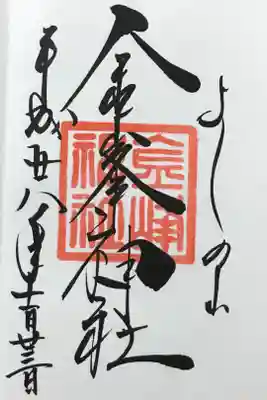 よしの山
金峯神社
平成廿八年十一月廿三日
金峰
神社